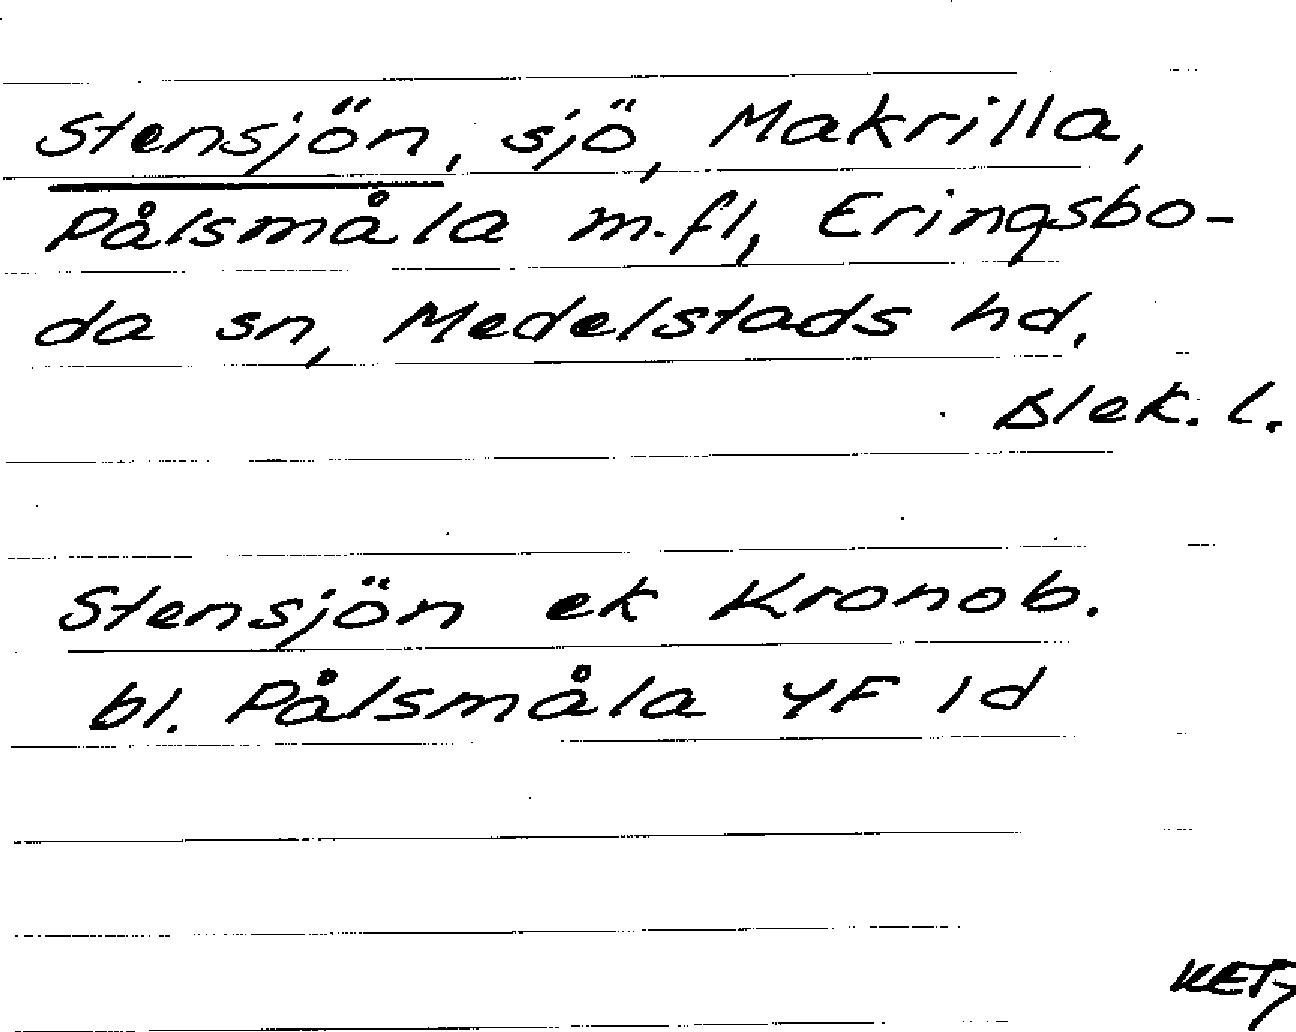 Stensjön, sjö, Makrilla,
Pålsmåla m.fl, Eringsbo-
da sn, Medelstads hd,
Blek. l.
Stensjön ek Kronob.
bl. Pålsmåla YF 1d